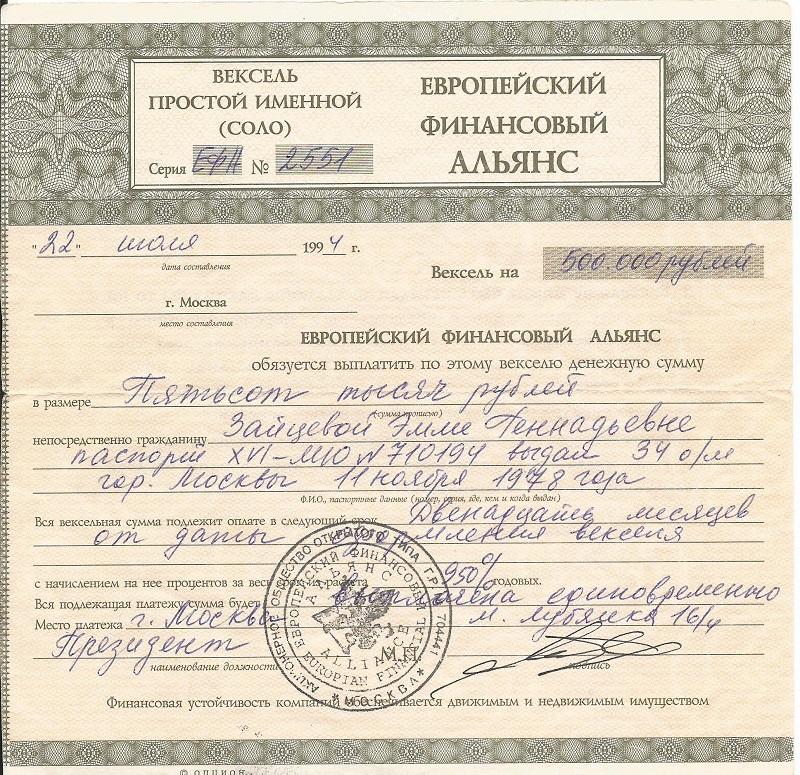 ВЕКСЕЛЬ
ПРОСТОЙ ИМЕННОЙ
(СОЛО)
Серия ЕФА № 2551
ЕВРОПЕЙСКИЙ
ФИНАНСОВЫЙ
АЛЬЯНС
"22" июля 1994 г.
дата составления
Вексель на 500.000 рублей
г. Москва
место составления
ЕВРОПЕЙСКИЙ ФИНАНСОВЫЙ АЛЬЯНС
обязуется выплатить по этому векселю денежную сумму
в размере Пятьсот тысяч рублей
(сумма прописью)
непосредственно гражданину Зайцевой Эмме Геннадьевне
паспорт XVI-МЮ № 710194 выдан 34 о/м
гор. Москвы 11 ноября 1978 года
Ф.И.О., паспортные данные (номер, серия, где, кем и когда выдан)
Вся вексельная сумма подлежит оплате в следующий срок Двенадцать месяцев
от даты оформления векселя
с начислением на нее процентов за весь срок из расчета 950% годовых.
Вся подлежащая платежу сумма будет выплачена единовременно
Место платежа г. Москва м. Лубянка 16/4
Президент
наименование должности
М.П.
подпись
АКЦИОНЕРНОЕ ОБЩЕСТВО ОТКРЫТОГО ТИПА Г.Р. 704441
ЕВРОПЕЙСКИЙ ФИНАНСОВЫЙ
АЛЬЯНС
EUROPIAN FINANCIAL
ALLIANCE
* МОСКВА *
Финансовая устойчивость компании обеспечивается движимым и недвижимым имуществом
© ОПЦИОН